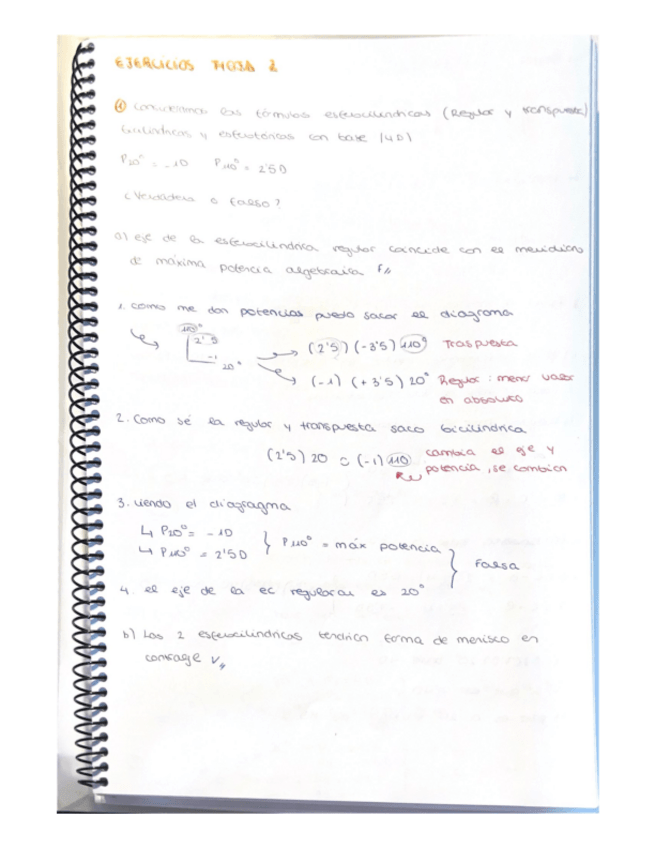 EJERCICIOS HOJA 2
① Consideramos las fórmulas esferocilíndricas (Regular y transpuesta)
bicilíndricas y esferotóricas con base (4D)
P20° = -1D P110° = 2'5D
¿Verdadera o Falso?
a) eje de la esferocilíndrica regular coincide con el meridiano
de máxima potencia algebraica F//
1. como me dan potencias puedo sacar el diagrama
110°
2'5
-1
20°
(2'5) (-3'5) 110° Traspuesta
(-1) (+3'5) 20° Regular: menor valor
en absoluto
2. Como sé la regular y transpuesta saco bicilíndrica
(2'5) 20 ⊂ (-1) 110 cambia el eje y
potencia, se combian
3. viendo el diagragma
↳ P20° = -1D
↳ P110° = 2'5D } P110° = máx potencia } Falsa
4. el eje de la ec regular es 20°
b) Las 2 esferocilíndricas tendrían forma de menisco en
contage V//